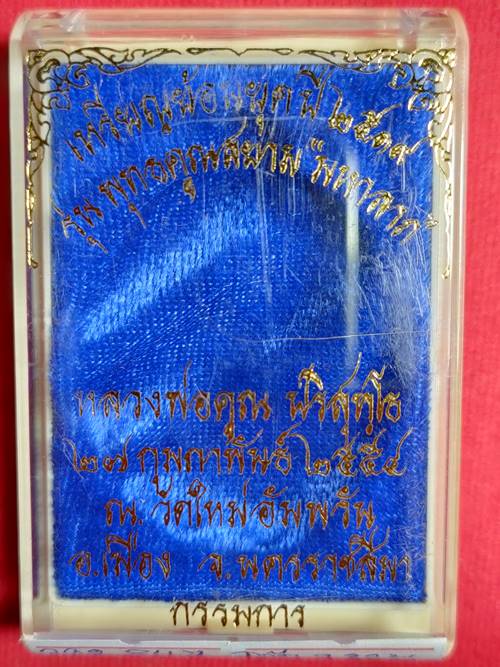 เหรียญย้อนยุคปี ๒๕๓๙
รุ่น พุทธคุณสยาม
หลวงพ่อคูณ ปริสุทฺโธ
๒๗ กุมภาพันธ์ ๒๕๕๔
ณ. วัดใหม่อัมพวัน
อ.เมือง จ.นครราชสีมา
กรรมการ